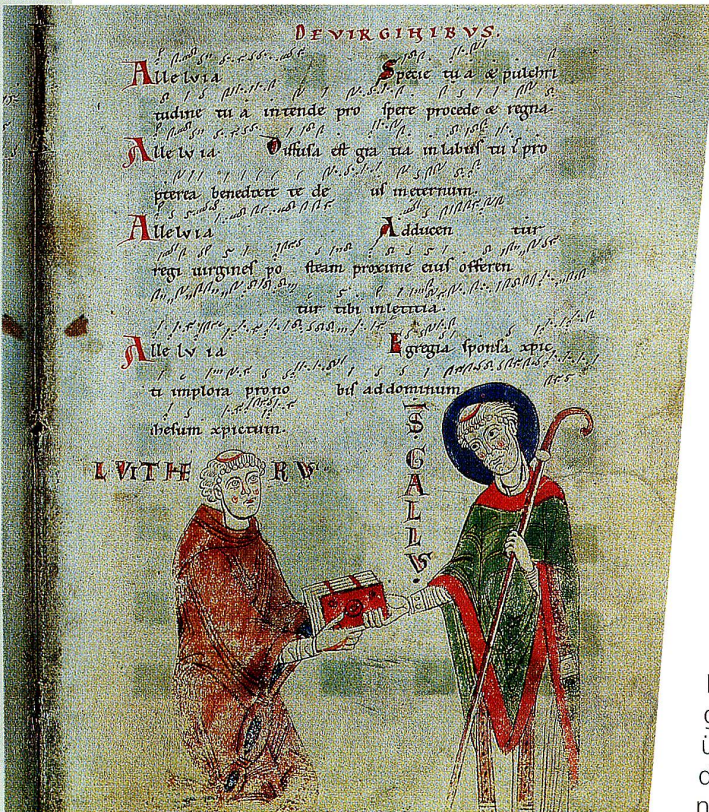 DE VIRGINIBVS.
Alleluia Specie tua & pulchri
tudine tu a intende pro spere procede & regna.
Alleluia Diffusa est gra tia in labiis tu pro
pterea benedixit te de us in eternum.
Alleluia Adducen tur
regi uirgines po steam proxime eius offeren
tur tibi inleticia.
Alle lu ia Egregia sponsa xpic
ti implora prono bis addominum
ihesum xpictum.
LVITHE RVS
S. GALLVS.